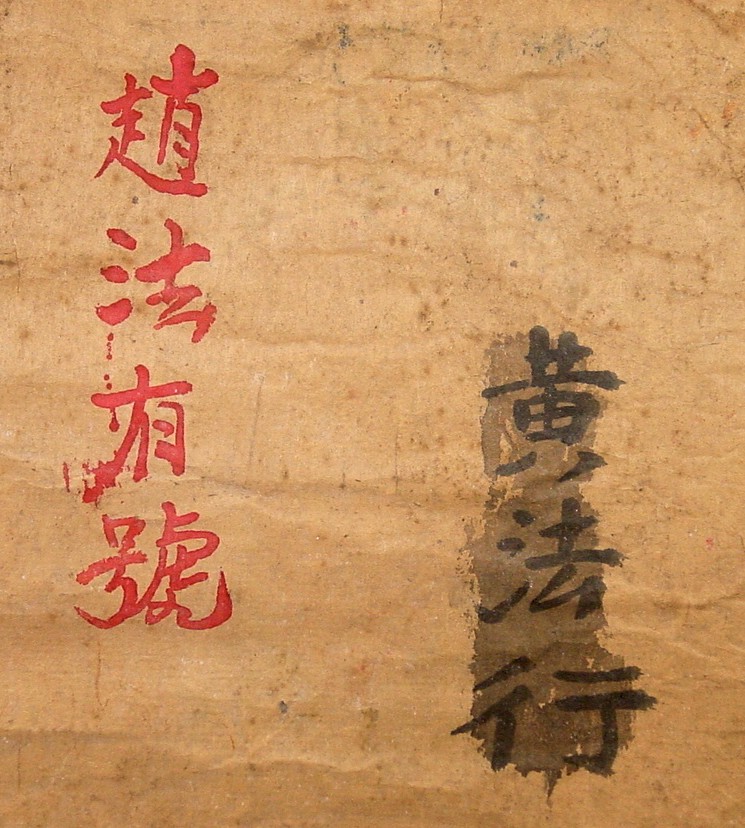 黄法行
趙法有號